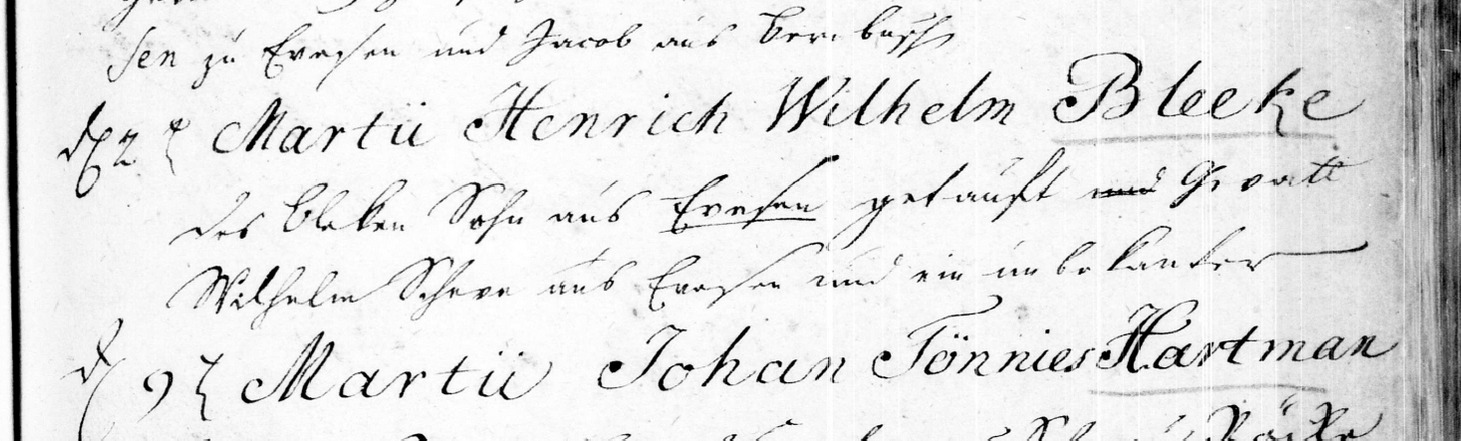 sen zu Evesen und Jacob aus Berebusch
d 2 t Martii Henrich Wilhelm Bleeke
des Bleken Sohn aus Evesen getauft und Gevatt
Wilhelm Scheve aus Evesen und ein unbekanter
d 9 t Martii Johan Tönnies Hartman